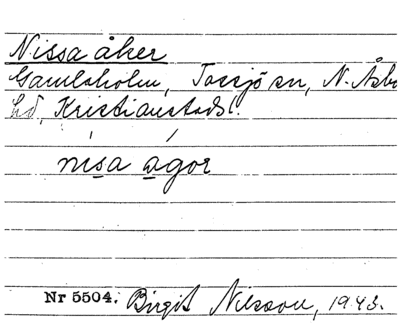 Nissa åker
Gamlaholm, Tossjö sn, N. Åsbo
hd, Kristianstads l.
nisa agor
Nr 5504. Birgit Nilsson, 1943.